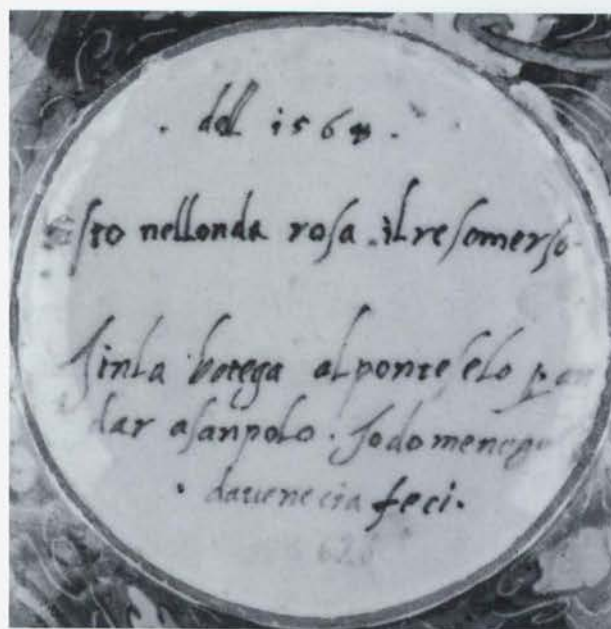 . dell 1564 .
sto nellonda rosa . il re somerso
Jinla botega alponteselo p an
dar asanpolo . Jo domenego
. dauenecia feci .